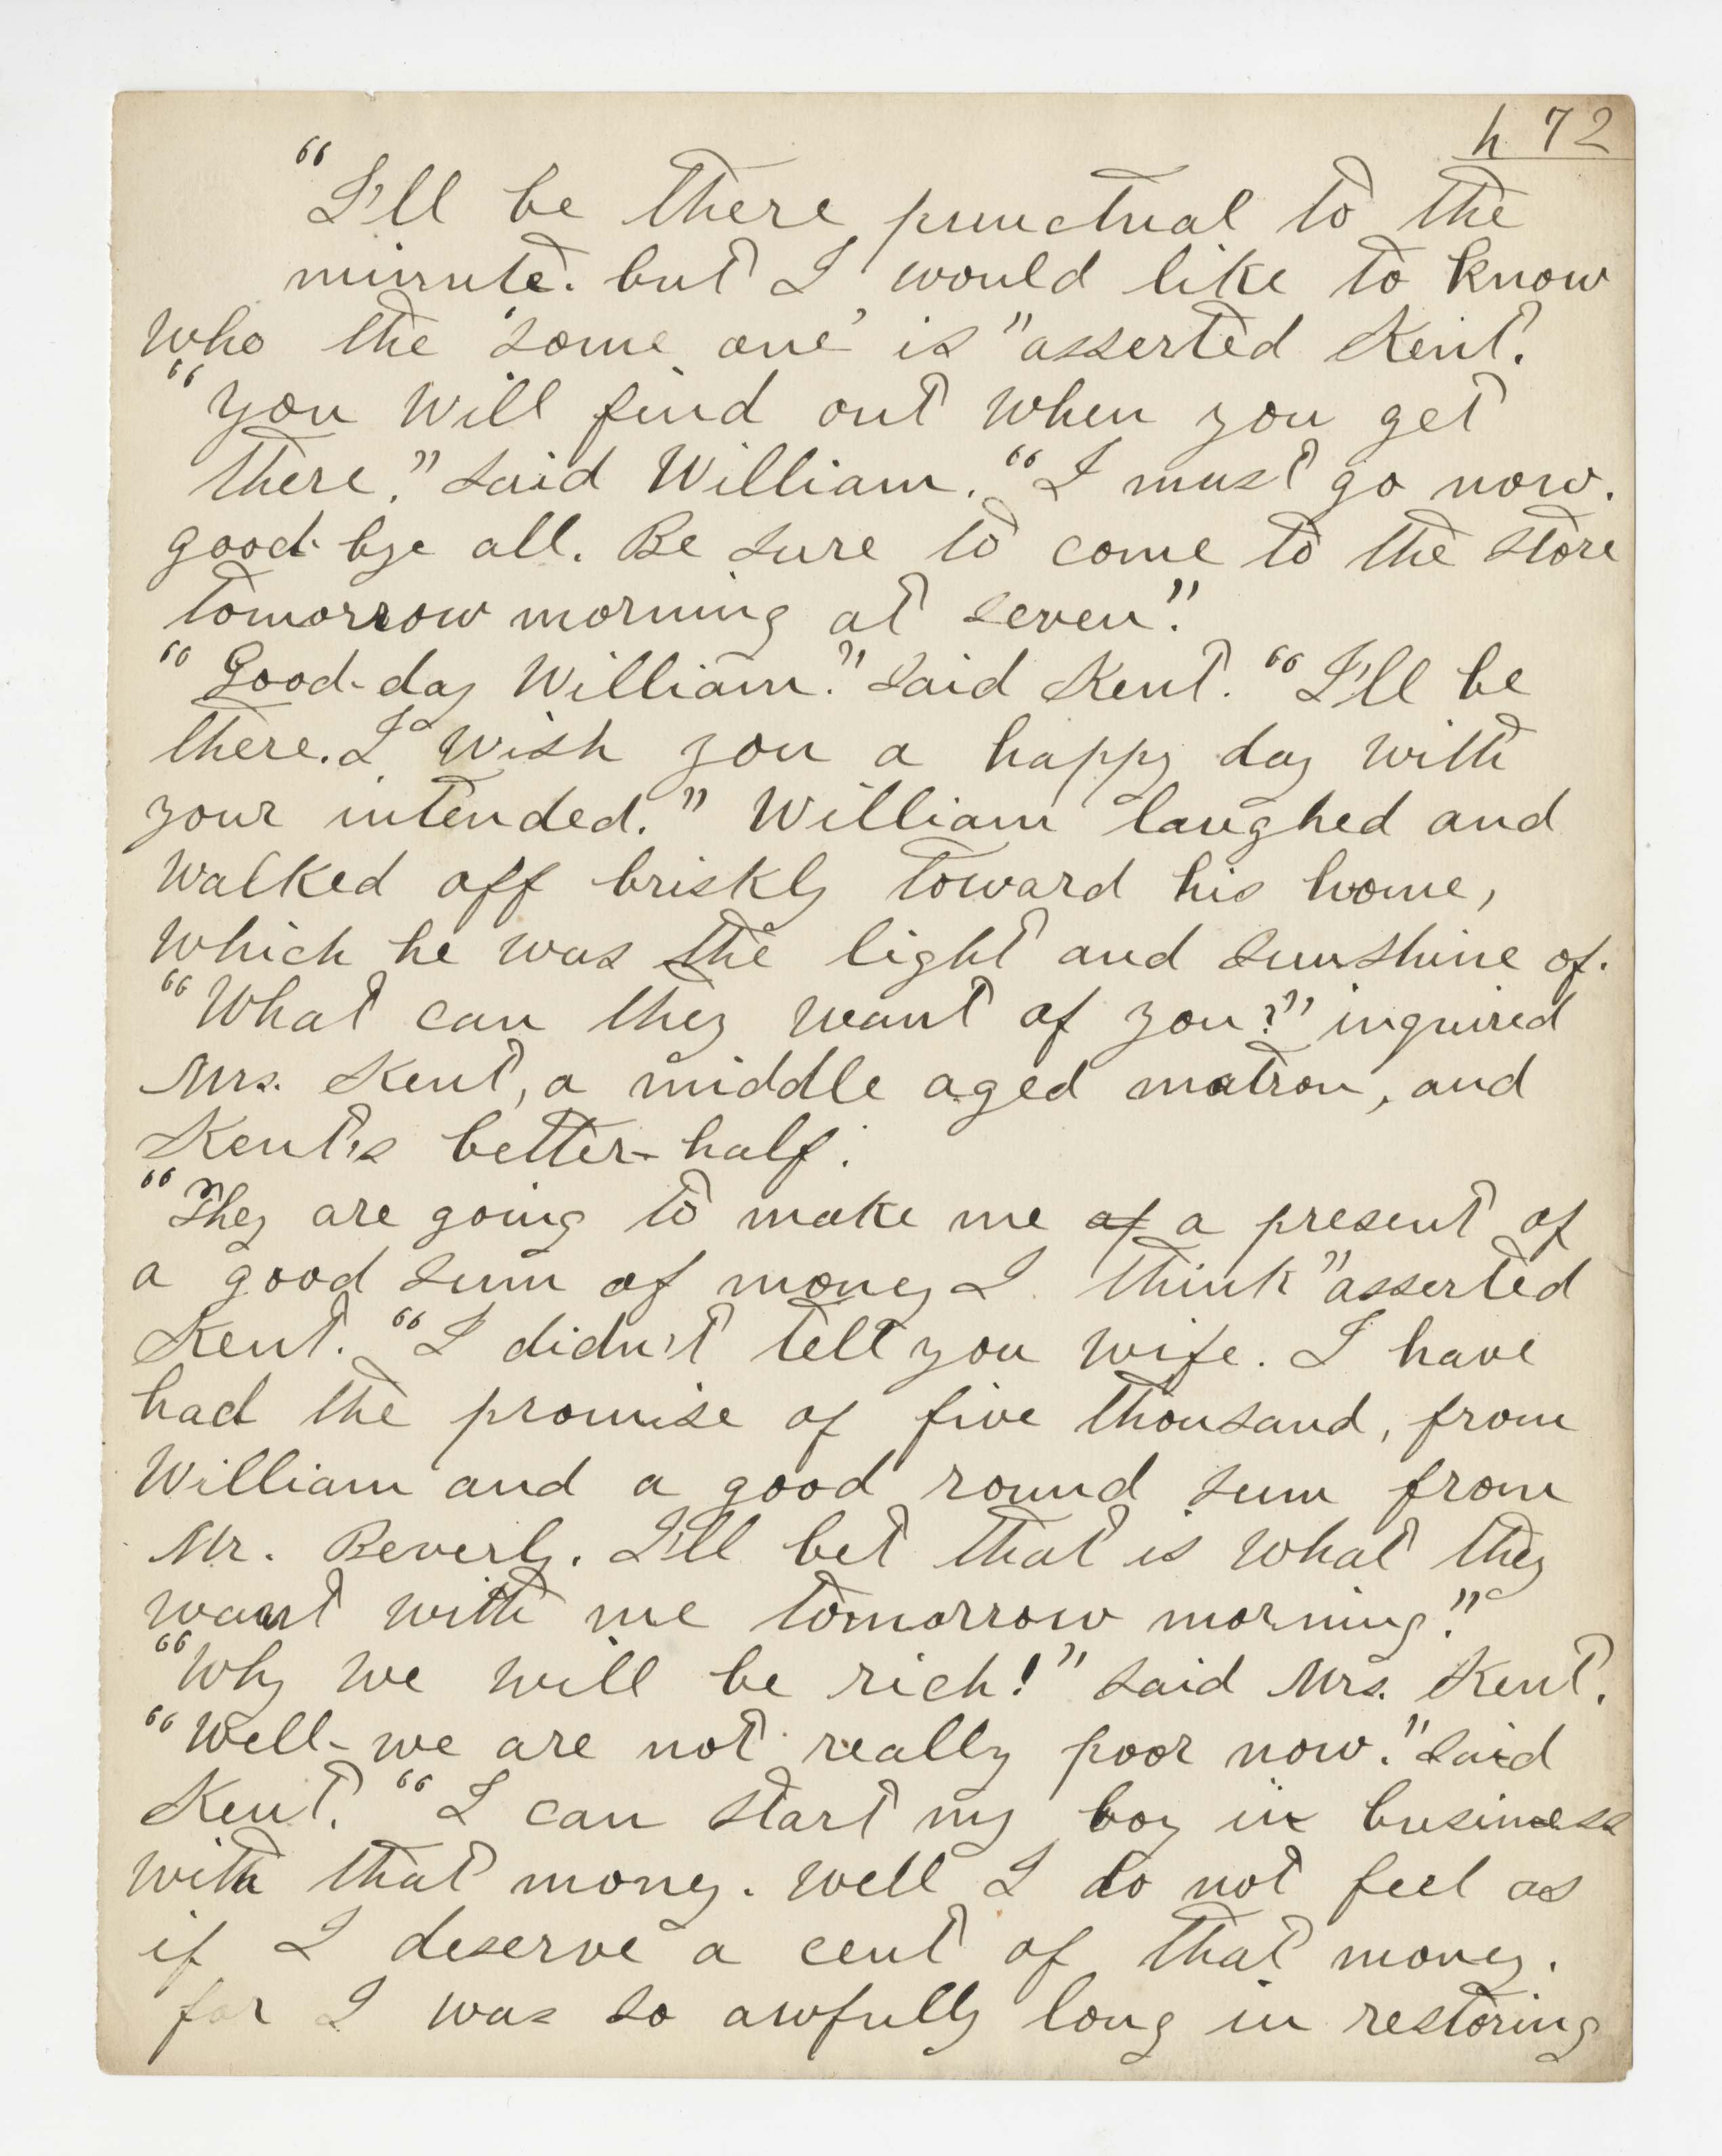 h 72
“I'll be there punctual to the
minute. but I would like to know
who the 'some one' is” asserted Kent.
“you will find out when you get
there.” said William. “I must go now.
good-bye all. Be sure to come to the store
tomorrow morning at seven.”
“Good-day William.” said Kent. “I'll be
there. I wish you a happy day with
your intended.” William laughed and
walked off briskly toward his home,
which he was the light and sunshine of.
“What can they want of you?” inquired
Mrs. Kent, a middle aged matron, and
Kent's better-half.
“They are going to make me of a present of
a good sum of money I think” asserted
Kent. “I didn't tell you wife. I have
had the promise of five thousand, from
William and a good round sum from
Mr. Beverly. I'll bet that is what they
want with me tomorrow morning.”
“Why we will be rich!” said Mrs. Kent.
“Well-we are not really poor now.” said
Kent. “I can start my boy in business
with that money. well I do not feel as
if I deserve a cent of that money.
for I was so awfully long in restoring